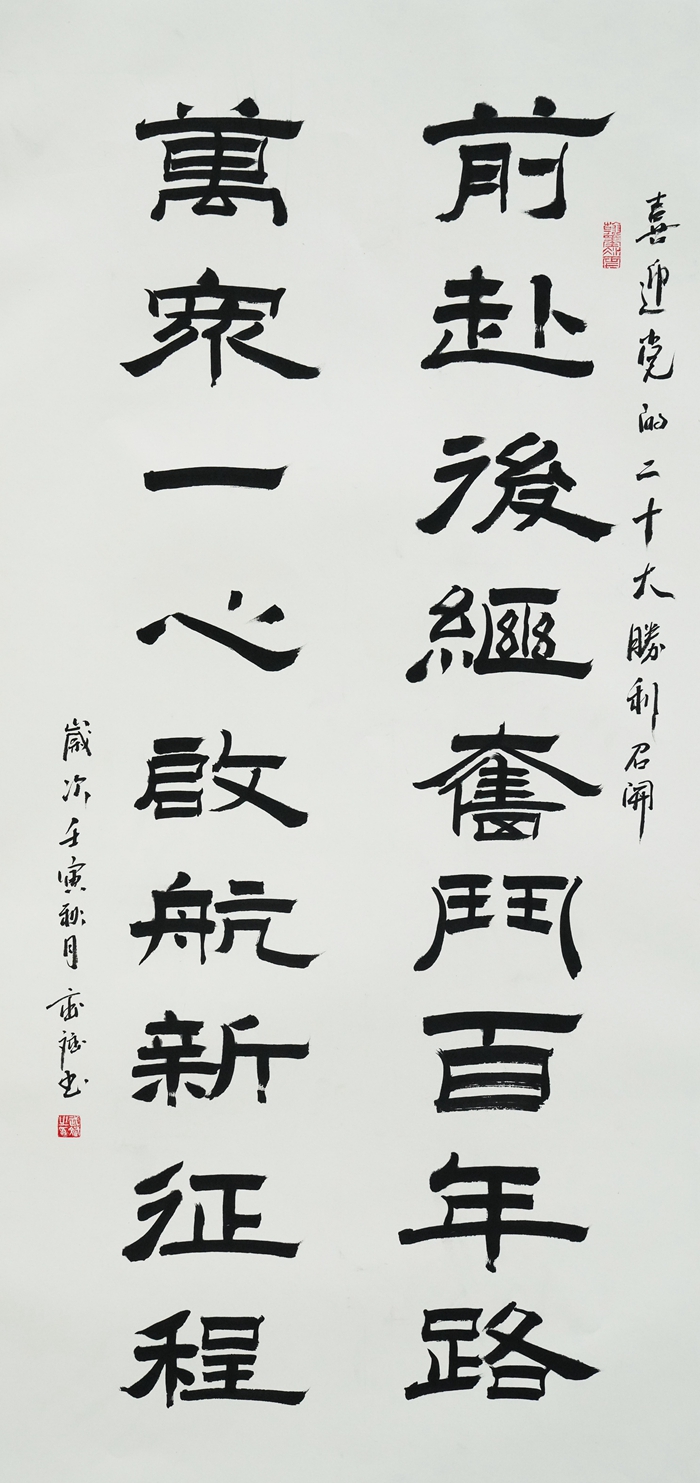 喜迎党的二十大勝利召開
前赴後繼奮鬥百年路
萬眾一心啟航新征程
歲次壬寅秋月
书